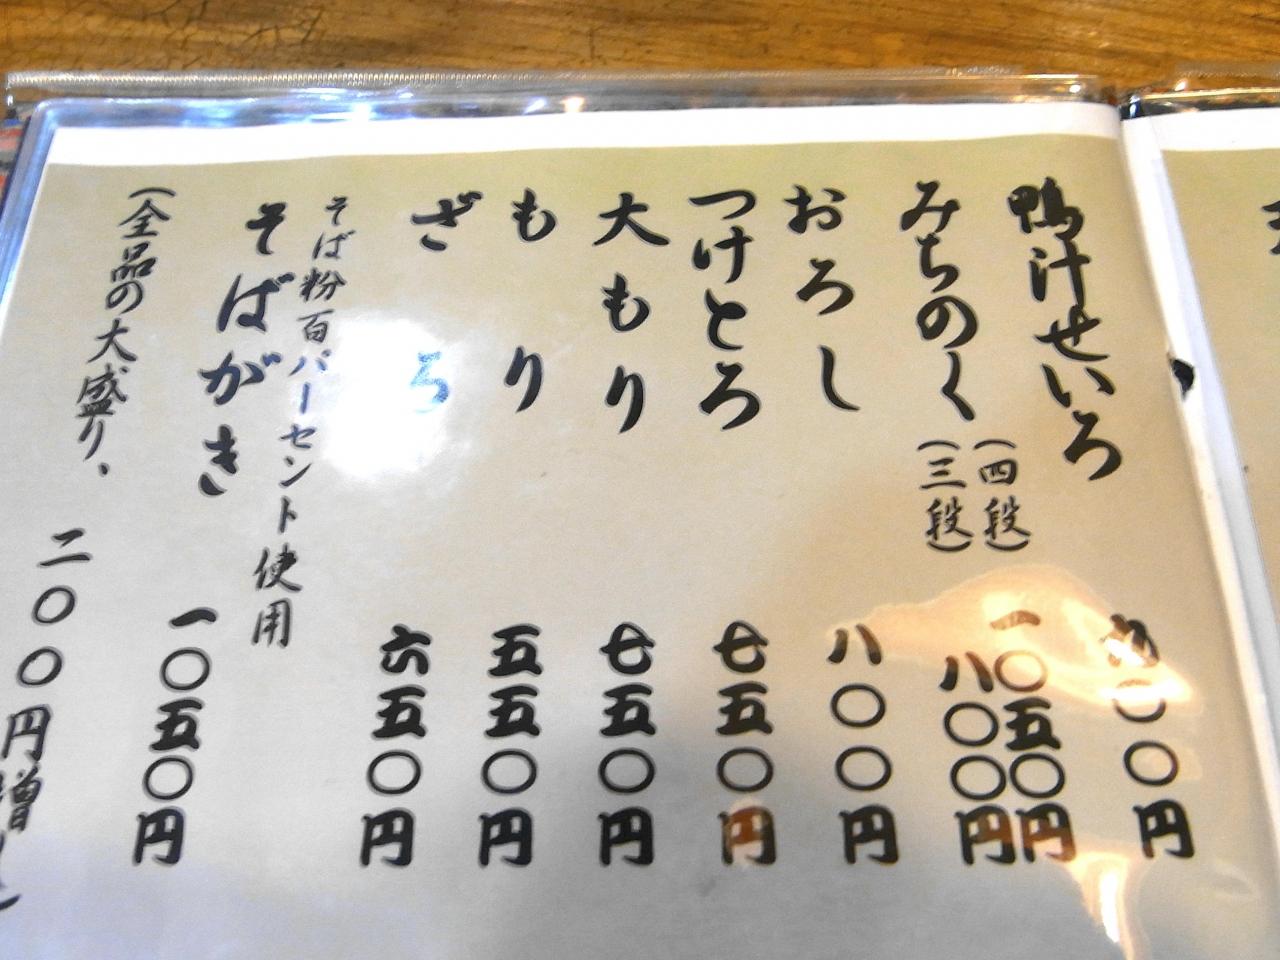 鴨汁せいろ 九〇〇円
みちのく(四段) 一〇五〇円
(三段) 八〇〇円
おろし 八〇〇円
つけとろ 七五〇円
大もり 七五〇円
もり 五五〇円
ざる 六五〇円
そば粉百パーセント使用
そばがき 一〇五〇円
(全品の大盛り、二〇〇円増し)